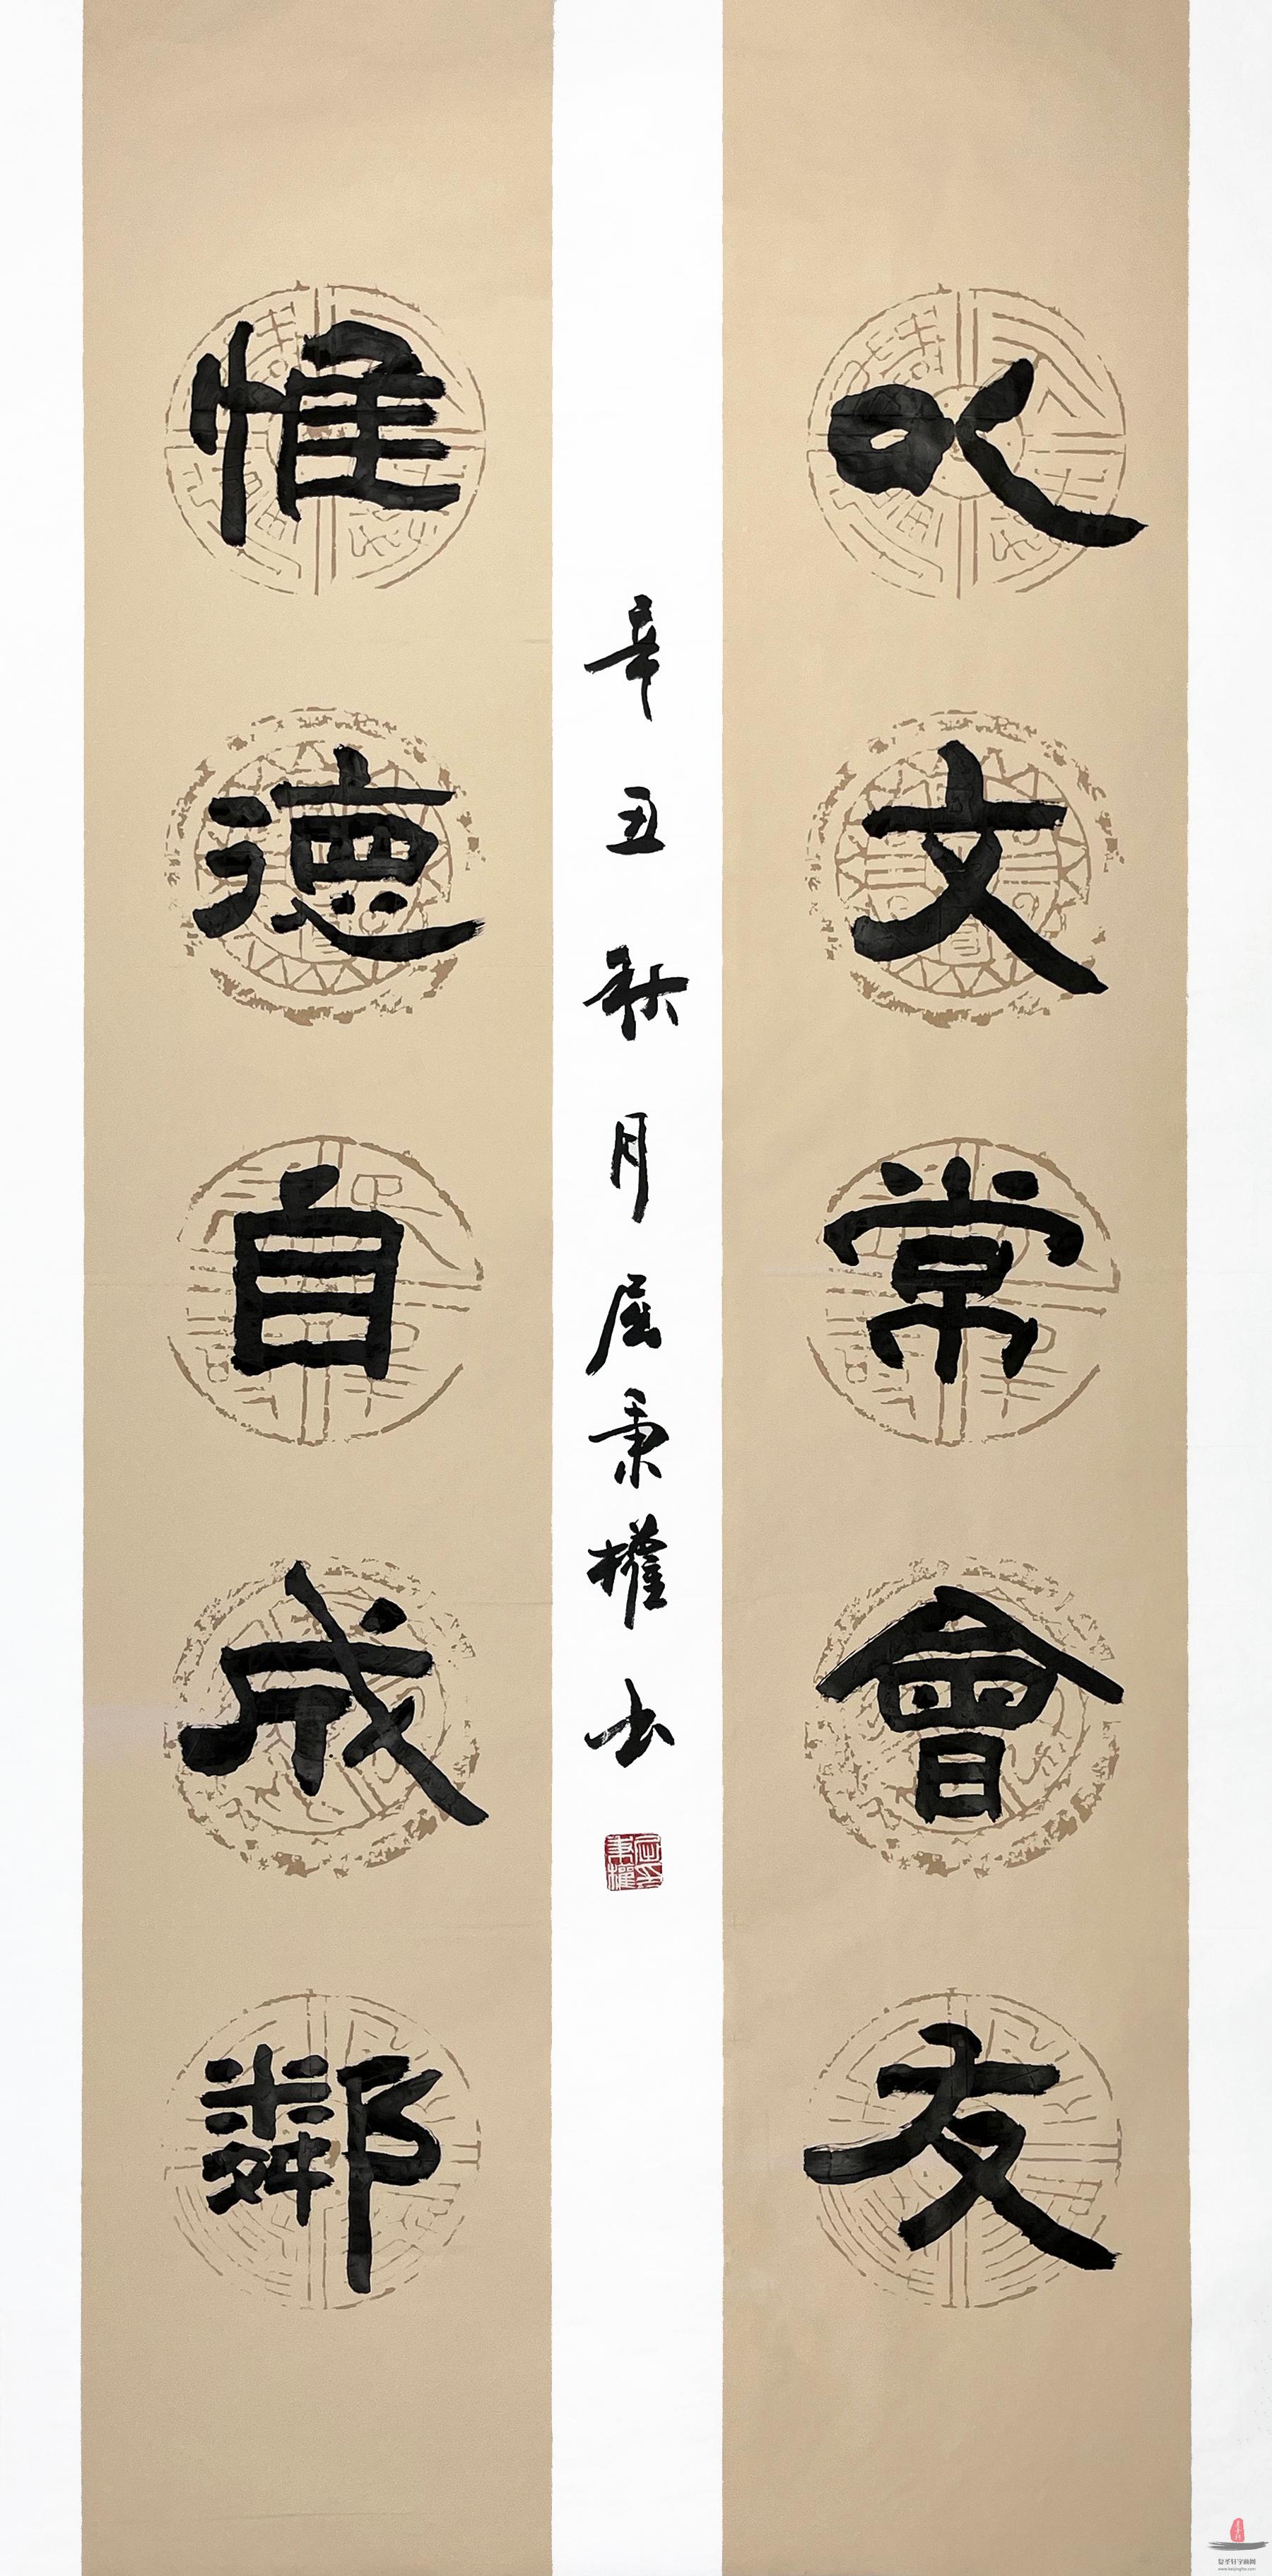 以文常會友
惟德自成鄰
辛丑秋月屈秉權书
屈秉權印